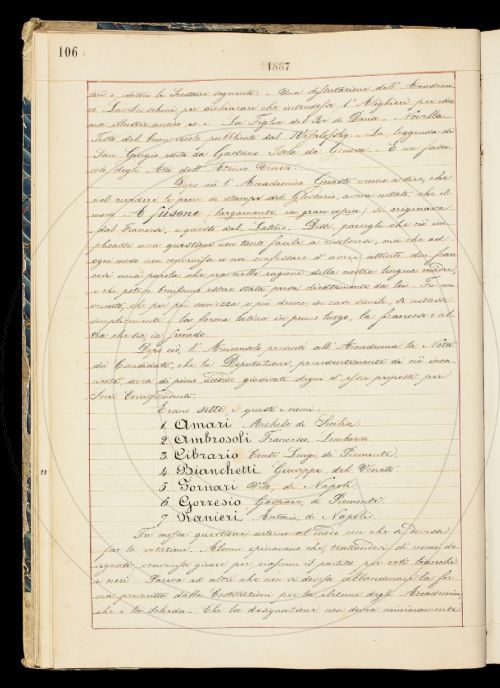 106
1867
seguenti. Una dissertazione dell' Accademico
per dichiarare che intendesse l' Alighieri per
La Figlia del Re di Dacia. Novella
Testo del buon secolo pubblicato dal Wesselofsky. La leggenda di
San Giorgio edita da Gaetano da Genova. E un fasci-
colo degli Atti dell' Ateneo Veneto.
Dopo ciò l' Accademico venne a dire, che
nel rivedere le prove di stampa del Glossario, aveva notato, che il
modo A fusone (largamente, in gran copia) si originava
dal Francese, e questo dal Latino. Disse, parergli che ciò im-
plicasse una questione non tanto facile a risolversi, ma che ad
ogni modo non conveniva a noi confessare d' avere attinto dai Fran-
cesi una parola che per nelle ragioni della nostra lingua madre,
e che poteva benissimo essere stata presa direttamente da lei.
in casi simili, si notasse
semplicemente la forma latina in primo luogo, la francese o al-
tra che sia, in secondo.
Dopo ciò, l' Arciconsolo presentò all' Accademia la Nota
dei Candidati, che la Deputazione, precedentemente di ciò inca-
ricata, aveva di pieno accordo giudicati degni d' esser proposti per
Soci Corrispondenti.
Erano sette e questi i nomi.
1 Amari Michele di Sicilia
2 Ambrosoli Francesco, Lombardo
3 Cibrario Conte Luigi, di Piemonte
4 Bianchetti Giuseppe, del Veneto
5 Fornari Vito, di Napoli
6 Gorresio Gaspare, di Piemonte
7 Ranieri Antonio, di Napoli.
Fu mossa questione intorno al modo con che si dovesse
far la votazione. Alcuni opinavano che, trattandosi di nomi de-
signati, convenisse girare per ciascuno il partito per voti bianchi
e neri. Pareva ad altri che non si dovesse abbandonare la for-
ma prescritta dalle Costituzioni per la elezione degli Accademici
che è la scheda. Che la designazione non doveva minimamente